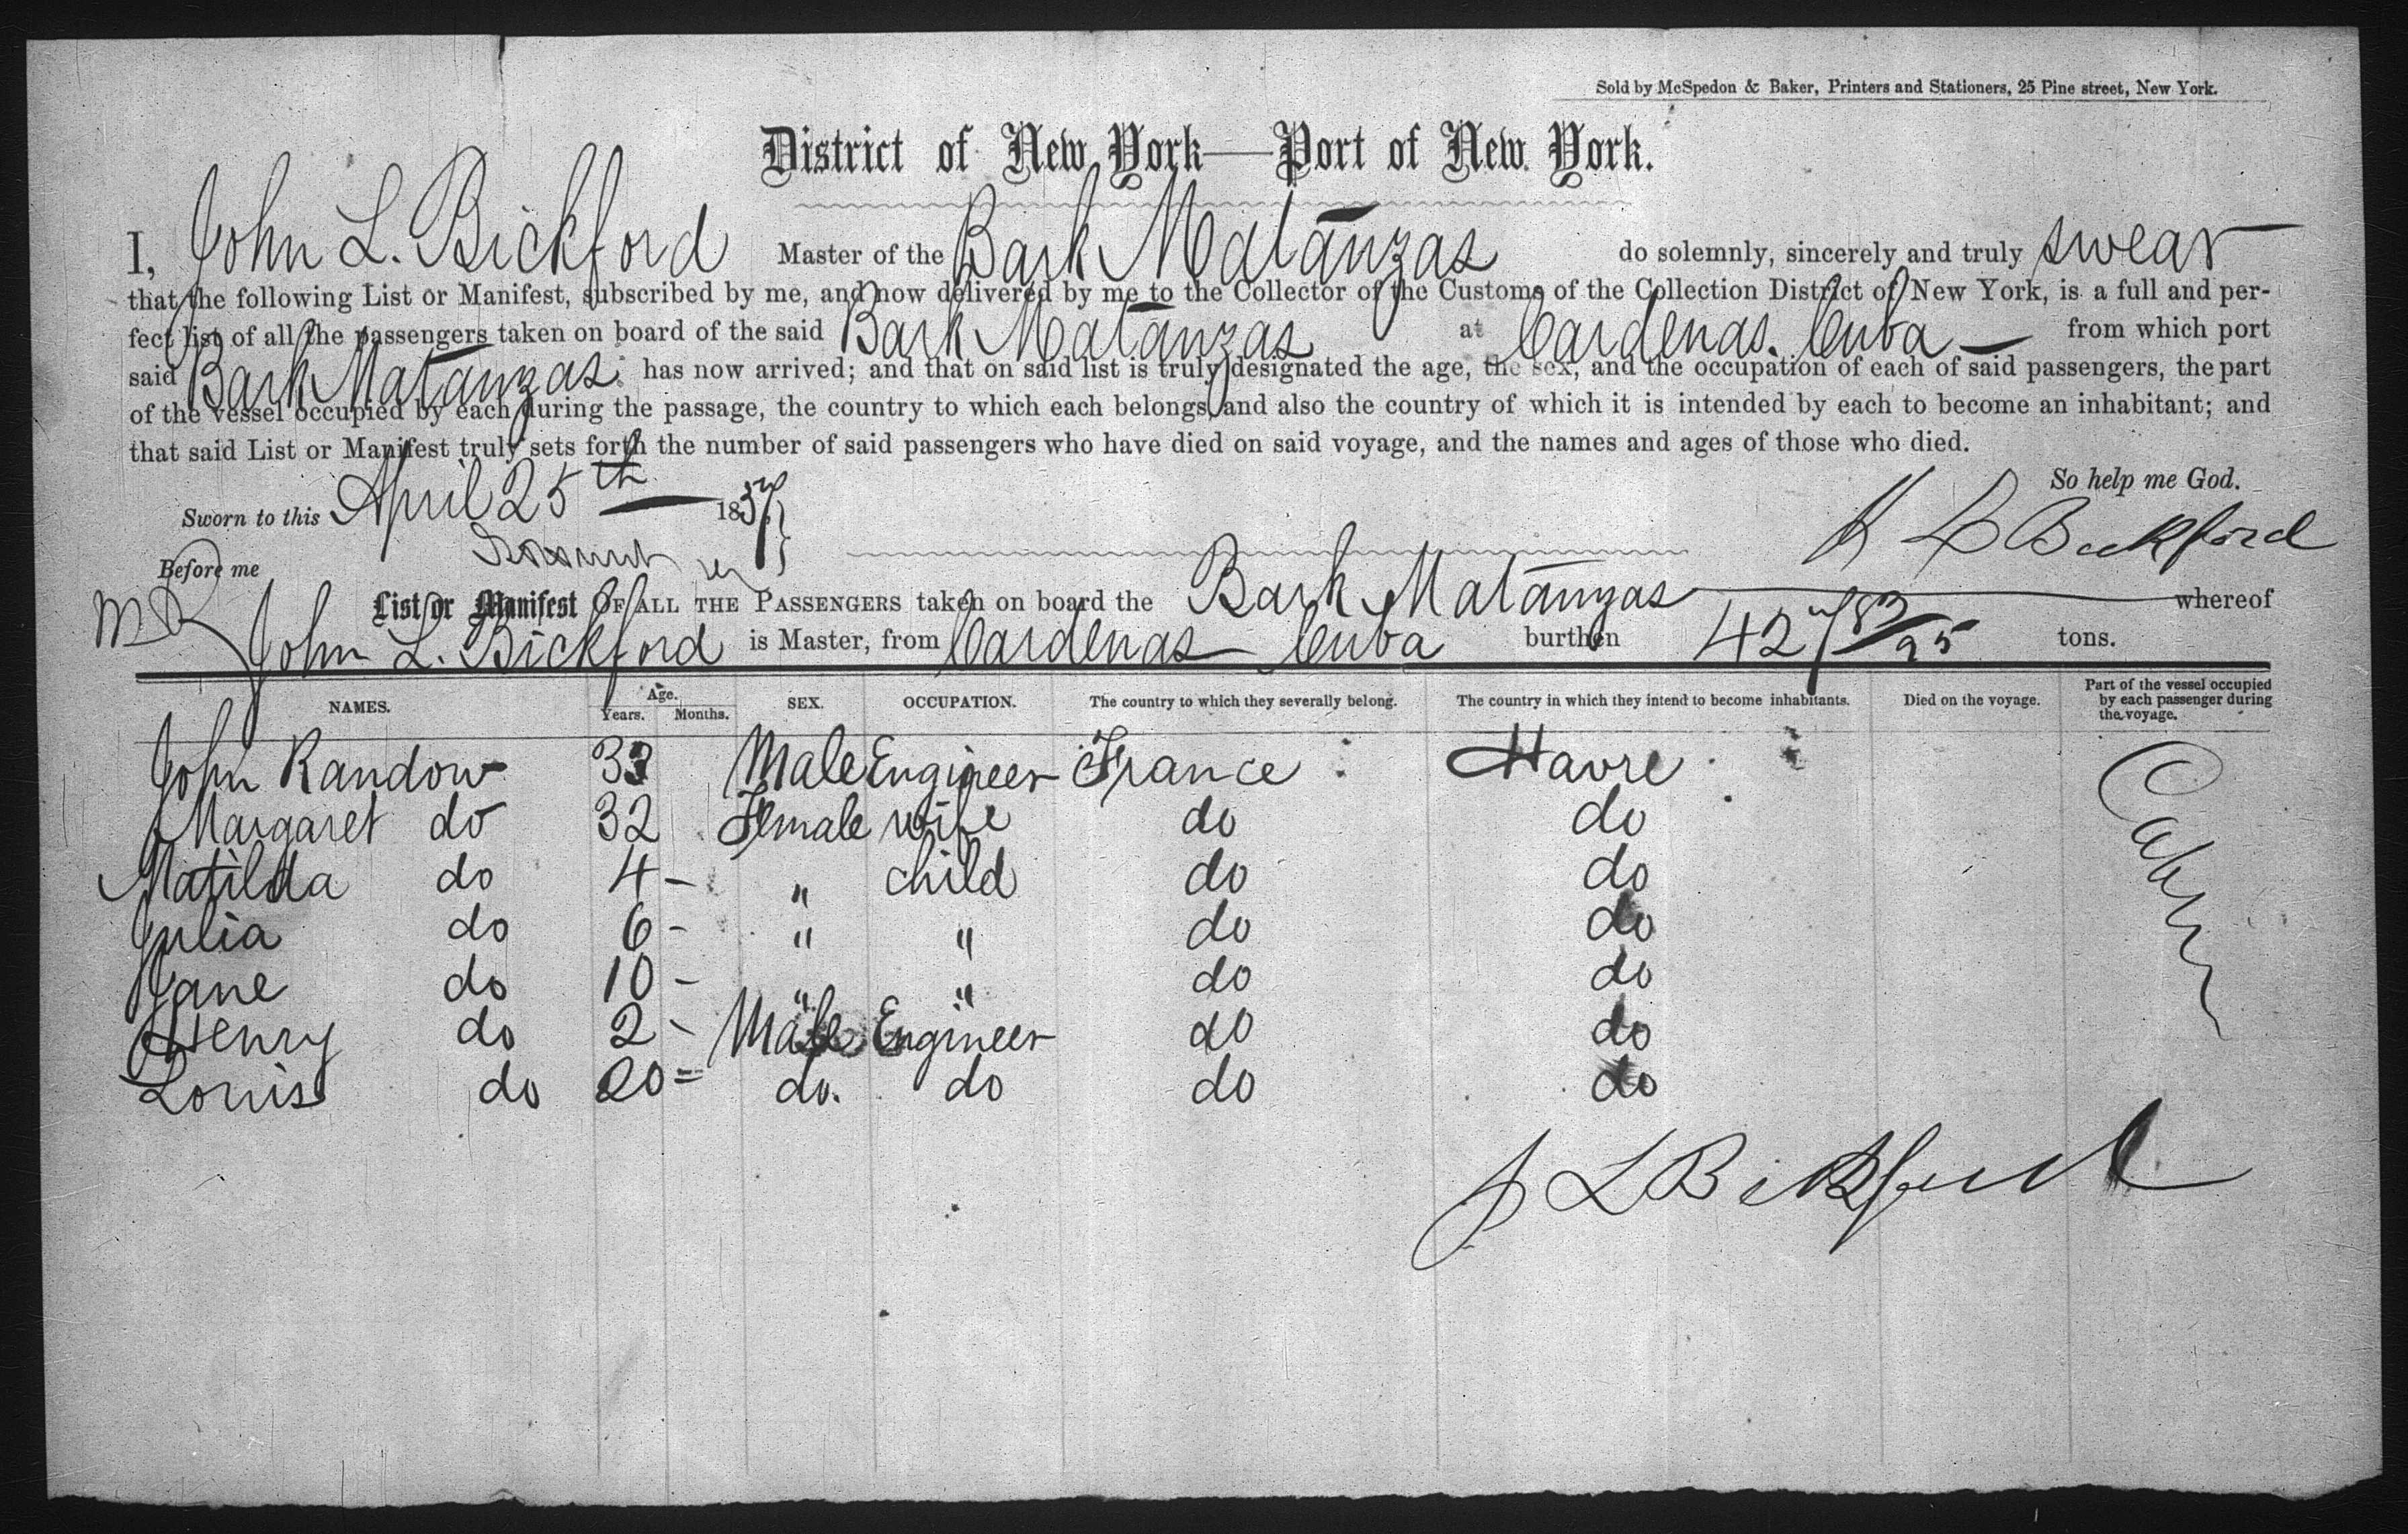 Sold by McSpedon & Baker, Printers and Stationers, 25 Pine street, New York.
District of New York—Port of New York.
I, John L. Bickford Master of the Bark Matanzas do solemnly, sincerely and truly swear
that the following List or Manifest, subscribed by me, and now delivered by me to the Collector of the Customs of the Collection District of New York, is a full and per-
fect list of all the passengers taken on board of the said Bark Matanzas at Cardenas. Cuba — from which port
said Bark Matanzas has now arrived; and that on said list is truly designated the age, the sex, and the occupation of each of said passengers, the part
of the vessel occupied by each during the passage, the country to which each belongs, and also the country of which it is intended by each to become an inhabitant; and
that said List or Manifest truly sets forth the number of said passengers who have died on said voyage, and the names and ages of those who died.
So help me God.
Sworn to this April 25th — 1857
J L Bickford
Before me
List or Manifest OF ALL THE PASSENGERS taken on board the Bark Matanzas whereof
John L. Bickford is Master, from Cardenas Cuba burthen 427 83/95 tons.
NAMES. Age. Years. Months. SEX. OCCUPATION. The country to which they severally belong. The country in which they intend to become inhabitants. Died on the voyage. Part of the vessel occupied by each passenger during the voyage.
John Randow 33 Male Engineer France Havre Cabin
Margaret do 32 Female wife do do
Matilda do 4 – " child do do
Julia do 6 – " " do do
Jane do 10 – " " do do
Henry do 2 – Male Engineer do do
Louis do 20 = do. do do do
J L Bickford